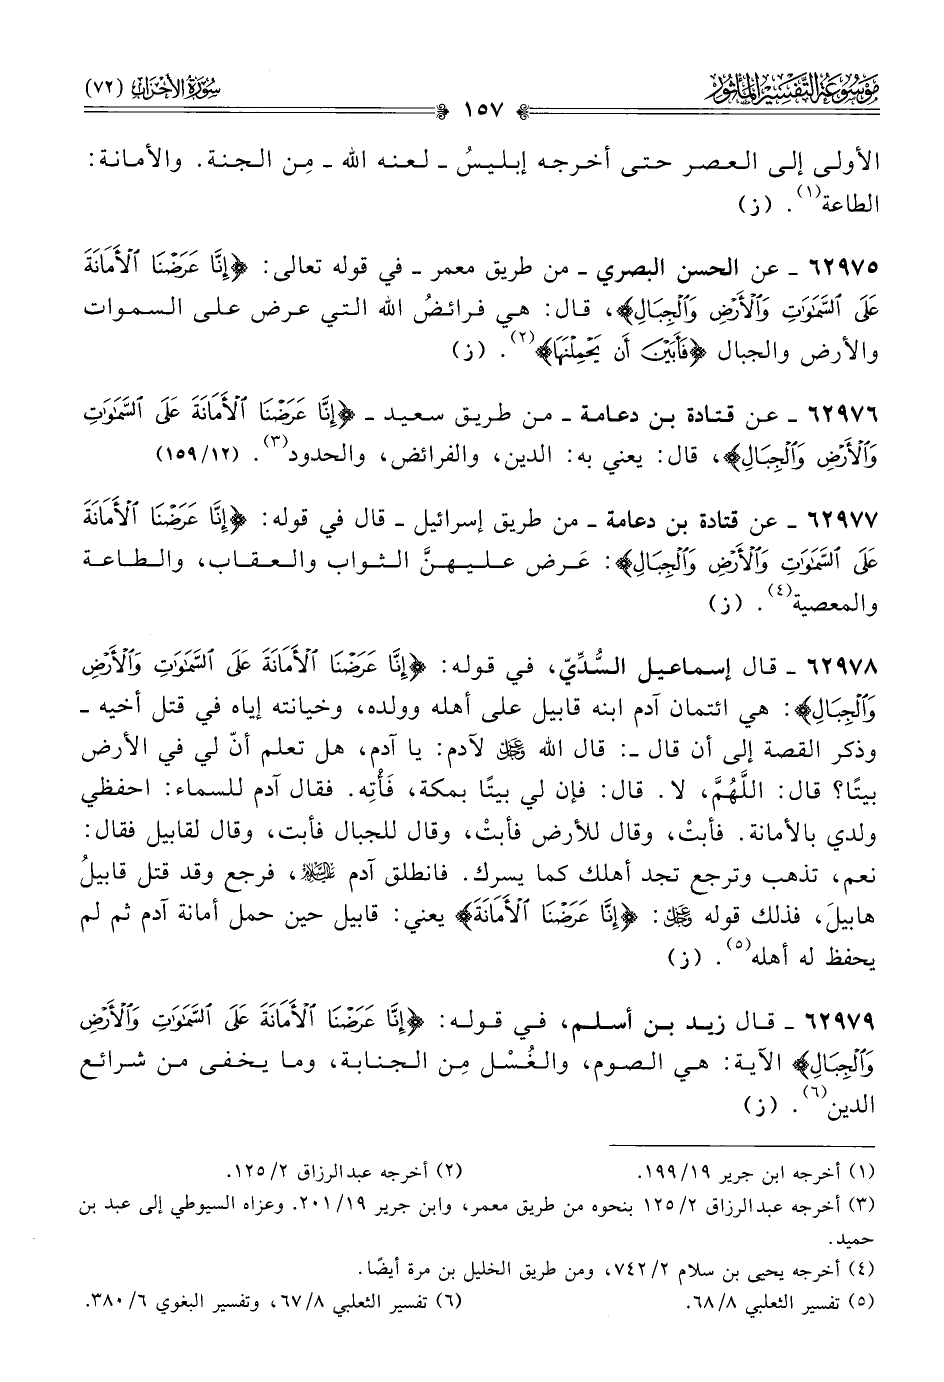 مَوْسُوعَة التَّفْسِير المَأْثُور
سُورَةُ الأَحْزَاب (٧٢)
١٥٧
الأولى إلى العصر حتى أخرجه إبليسُ ـ لعنه الله ـ مِن الجنة. والأمانة:
الطاعة(١). (ز)
٦٢٩٧٥ ـ عن الحسن البصري ـ من طريق معمر ـ في قوله تعالى: ﴿إِنَّا عَرَضْنَا ٱلْأَمَانَةَ
عَلَى ٱلسَّمَٰوَٰتِ وَٱلْأَرْضِ وَٱلْجِبَالِ﴾، قال: هي فرائضُ الله التي عرض على السموات
والأرض والجبال ﴿فَأَبَيْنَ أَن يَحْمِلْنَهَا﴾(٢). (ز)
٦٢٩٧٦ ـ عن قتادة بن دعامة ـ من طريق سعيد ـ ﴿إِنَّا عَرَضْنَا ٱلْأَمَانَةَ عَلَى ٱلسَّمَٰوَٰتِ
وَٱلْأَرْضِ وَٱلْجِبَالِ﴾، قال: يعني به: الدين، والفرائض، والحدود(٣). (١٥٩/١٢)
٦٢٩٧٧ ـ عن قتادة بن دعامة ـ من طريق إسرائيل ـ قال في قوله: ﴿إِنَّا عَرَضْنَا ٱلْأَمَانَةَ
عَلَى ٱلسَّمَٰوَٰتِ وَٱلْأَرْضِ وَٱلْجِبَالِ﴾: عَرض عليهنَّ الثواب والعقاب، والطاعة
والمعصية(٤). (ز)
٦٢٩٧٨ ـ قال إسماعيل السُّدِّيّ، في قوله: ﴿إِنَّا عَرَضْنَا ٱلْأَمَانَةَ عَلَى ٱلسَّمَٰوَٰتِ وَٱلْأَرْضِ
وَٱلْجِبَالِ﴾: هي ائتمان آدم ابنه قابيل على أهله وولده، وخيانته إياه في قتل أخيه ـ
وذكر القصة إلى أن قال ـ: قال الله ﷿ لآدم: يا آدم، هل تعلم أنّ لي في الأرض
بيتًا؟ قال: اللَّهُمَّ، لا. قال: فإن لي بيتًا بمكة، فَأْتِه. فقال آدم للسماء: احفظي
ولدي بالأمانة. فأبتْ، وقال للأرض فأبتْ، وقال للجبال فأبت، وقال لقابيل فقال:
نعم، تذهب وترجع تجد أهلك كما يسرك. فانطلق آدم ﵇، فرجع وقد قتل قابيلُ
هابيلَ، فذلك قوله ﷿: ﴿إِنَّا عَرَضْنَا ٱلْأَمَانَةَ﴾ يعني: قابيل حين حمل أمانة آدم ثم لم
يحفظ له أهله(٥). (ز)
٦٢٩٧٩ ـ قال زيد بن أسلم، في قوله: ﴿إِنَّا عَرَضْنَا ٱلْأَمَانَةَ عَلَى ٱلسَّمَٰوَٰتِ وَٱلْأَرْضِ
وَٱلْجِبَالِ﴾ الآية: هي الصوم، والغُسْل مِن الجنابة، وما يخفى من شرائع
الدين(٦). (ز)
(١) أخرجه ابن جرير ١٩/ ١٩٩. (٢) أخرجه عبدالرزاق ٢/ ١٢٥.
(٣) أخرجه عبدالرزاق ٢/ ١٢٥ بنحوه من طريق معمر، وابن جرير ١٩/ ٢٠١. وعزاه السيوطي إلى عبد بن
حميد.
(٤) أخرجه يحيى بن سلام ٢/ ٧٤٢، ومن طريق الخليل بن مرة أيضًا.
(٥) تفسير الثعلبي ٨/ ٦٨. (٦) تفسير الثعلبي ٨/ ٦٧، وتفسير البغوي ٦/ ٣٨٠.